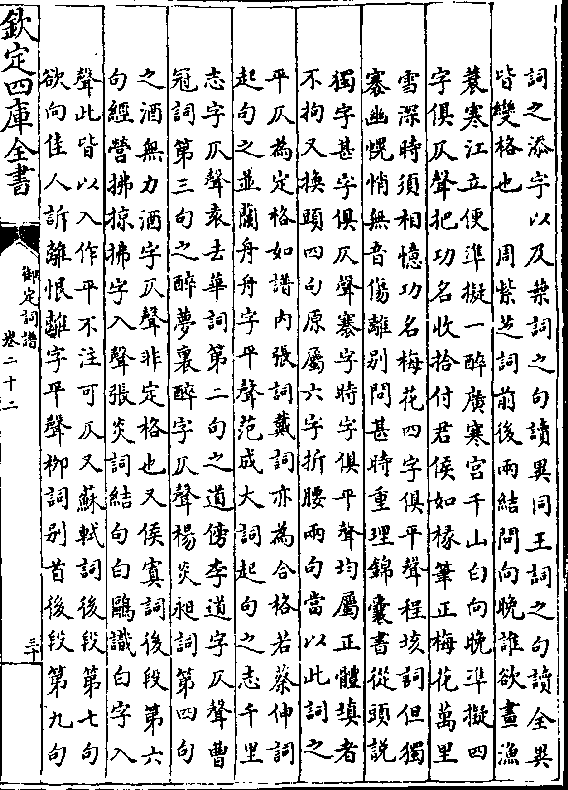 詞之添字以及葉詞之句讀異同王詞之句讀全異
皆變格也 周紫芝詞前後兩結問向晚誰欲畫漁
蓑寒江立便準擬一醉廣寒宮千山白向晚準擬四
字俱仄聲把功名收拾付君侯如椽筆正梅花萬里
雪深時須相憶功名梅花四字俱平聲程垓詞但獨
塞幽幌悄無音傷離别問甚時重理錦囊書從頭説
獨字甚字俱仄聲塞字時字俱平聲均屬正體填者
不拘又換頭四句原屬六字折腰兩句當以此詞之
平仄為定格如譜内張詞戴詞亦為合格若蔡伸詞
起句之並蘭舟舟字平聲范成大詞起句之志千里
志字仄聲袁去華詞第二句之道傍李道字仄聲曹
冠詞第三句之醉夢裏醉字仄聲楊炎昶詞第四句
之酒無力酒字仄聲非定格也又侯寘詞後段第六
句經營拂掠拂字入聲張炎詞結句白鷗識白字入
聲此皆以入作平不注可仄又蘇軾詞後段第七句
欲向佳人訴離恨離字平聲柳詞别首後段第九句
欽定四庫全書
御定詞譜
卷二十二
三十